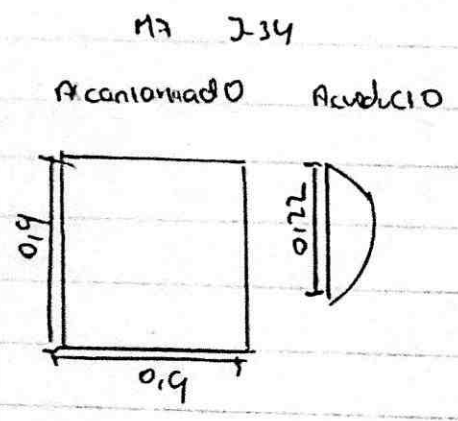 M7 J-34
Alcantarillado Acueducto
0,9 0,22
0,9